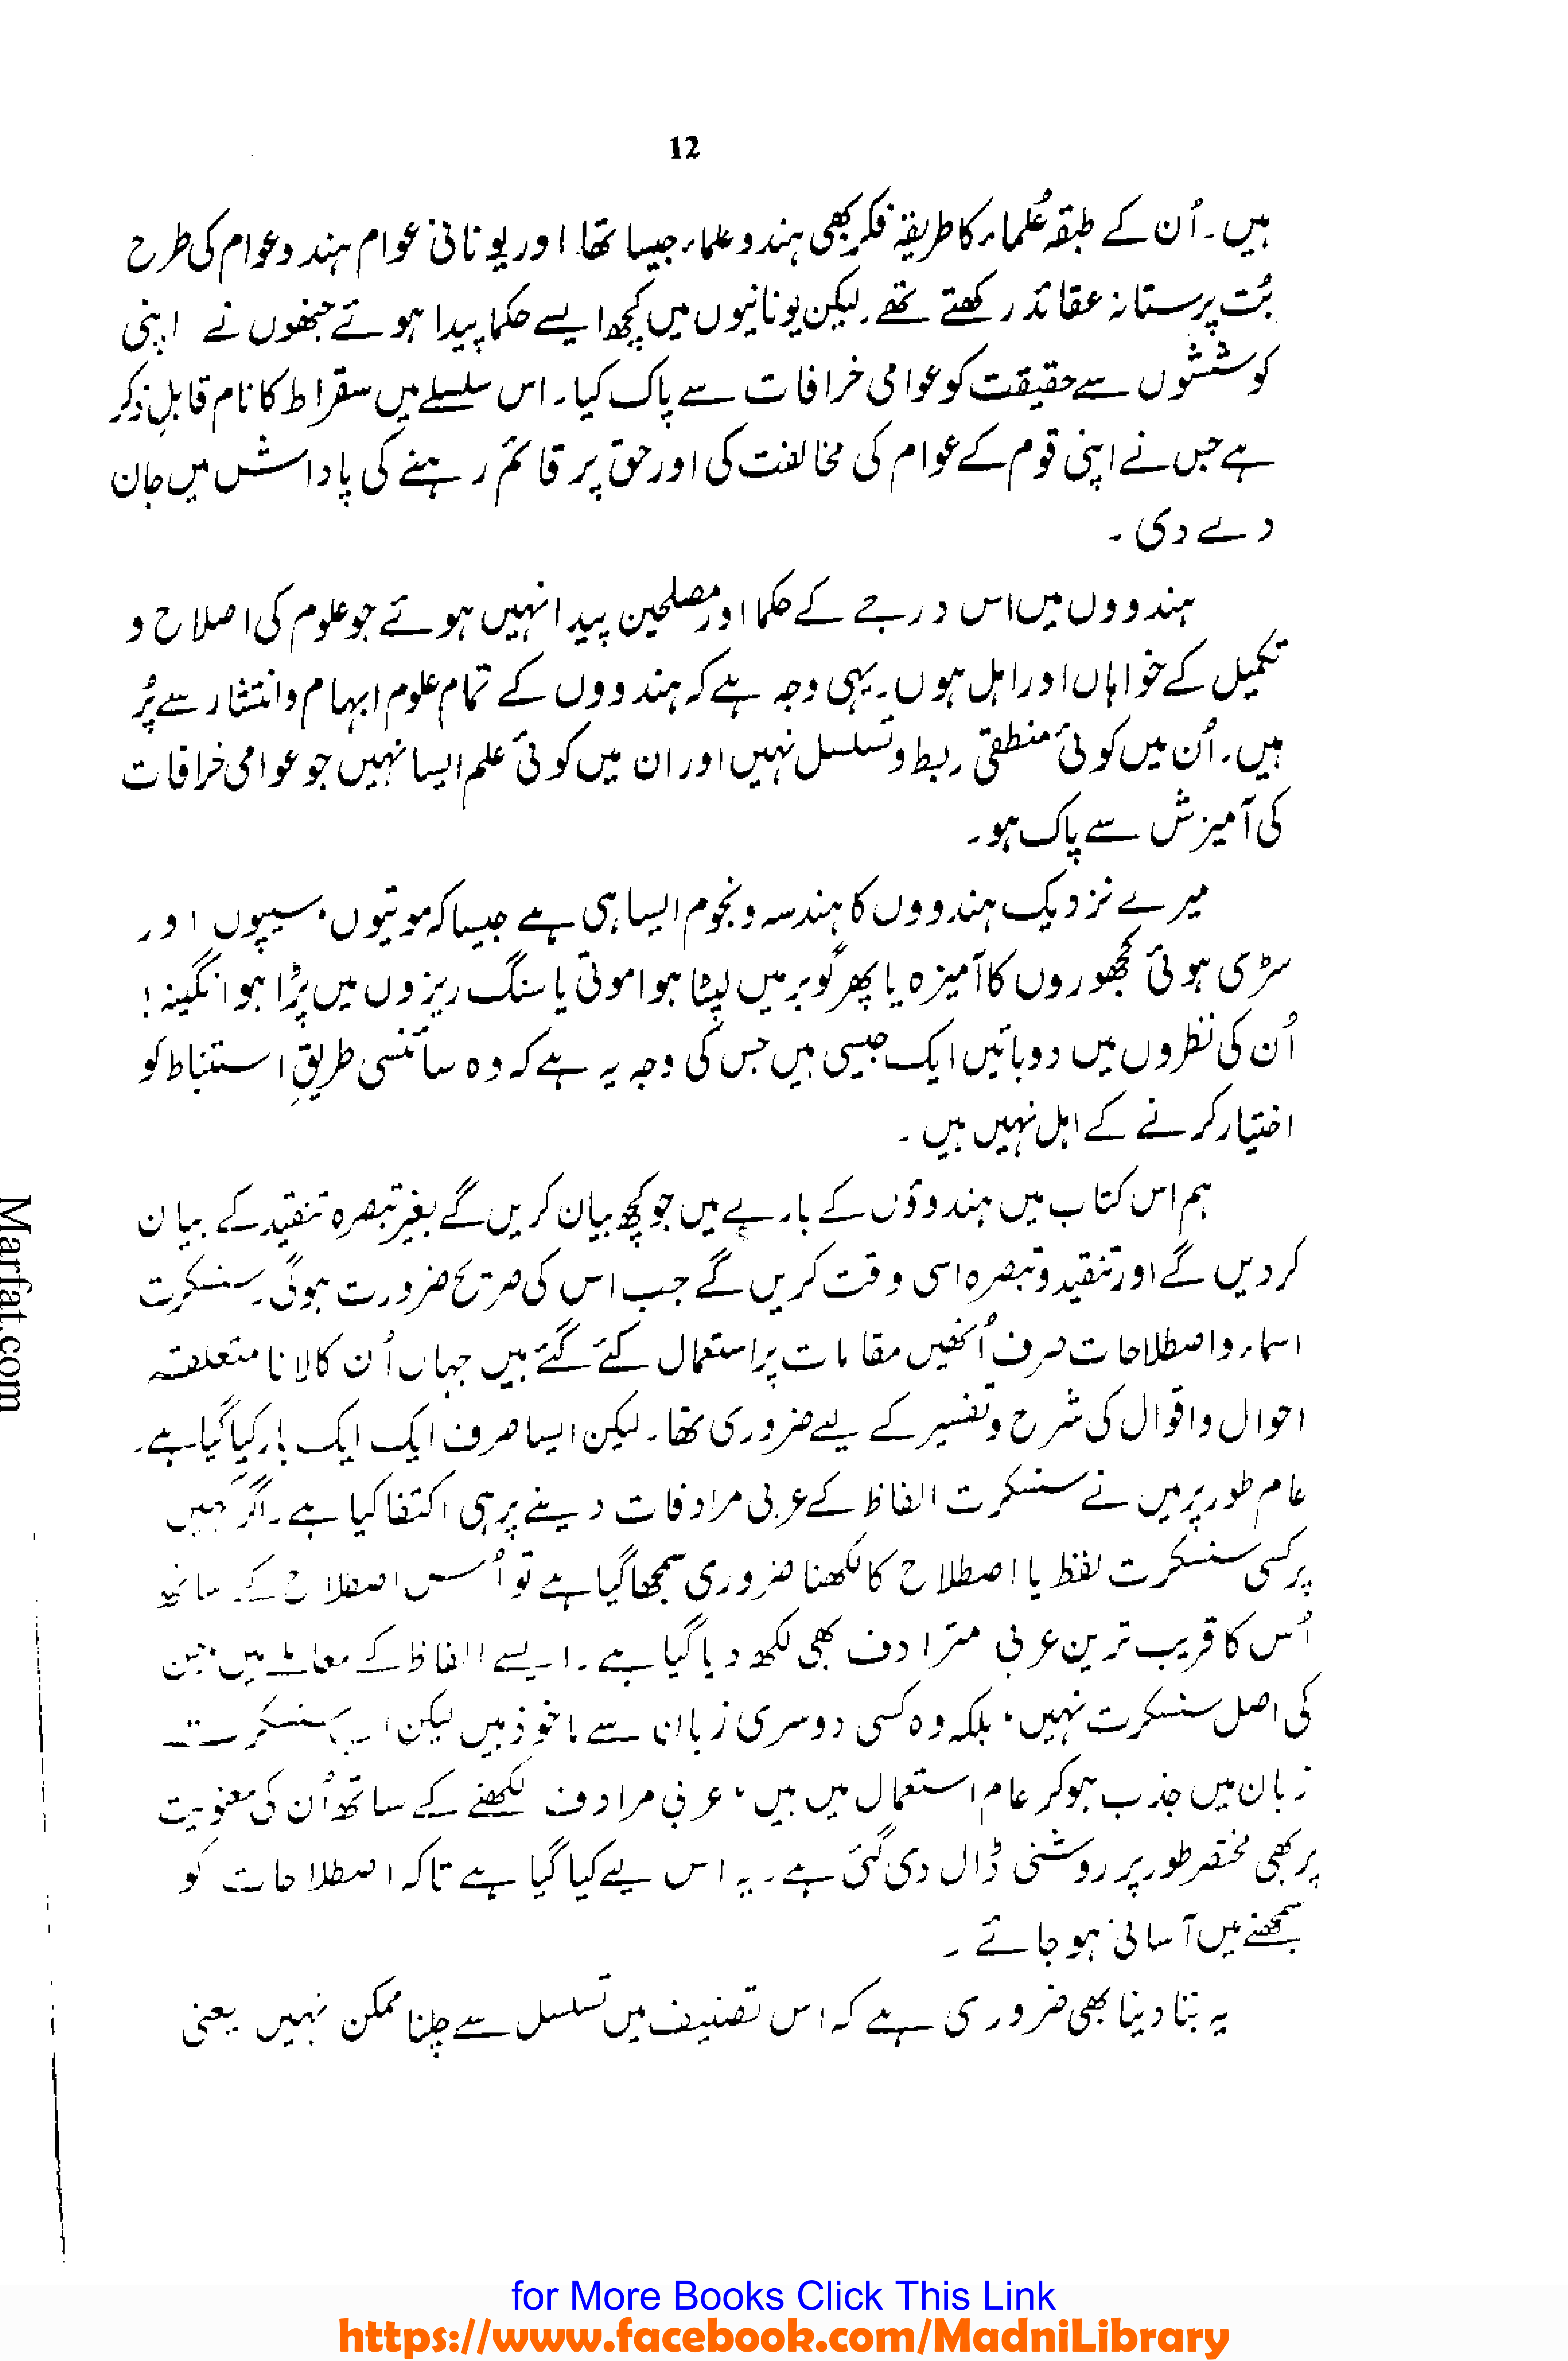 12
ہیں۔ اُن کے طبقہ عُلماء کا طریقہ فکر بھی ہندو علماء جیسا تھا اور یونانی عوام ہندو عوام کی طرح
بُت پرستانہ عقائد رکھتے تھے۔ لیکن یونانیوں میں کچھ ایسے حکما پیدا ہوئے جنھوں نے اپنی
کوششوں سے حقیقت کو عوامی خرافات سے پاک کیا۔ اس سلسلے میں سقراط کا نام قابلِ ذکر
ہے جس نے اپنی قوم کے عوام کی مخالفت کی اور حق پر قائم رہنے کی پاداش میں جان
دے دی۔
ہندووں میں اس درجے کے حکما اور مصلحین پیدا نہیں ہوئے جو علوم کی اصلاح و
تکمیل کے خواہاں اور اہل ہوں۔ یہی وجہ ہے کہ ہندووں کے تمام علوم ابہام و انتشار سے پُر
ہیں۔ اُن میں کوئی منطقی ربط و تسلسل نہیں اور ان میں کوئی علم ایسا نہیں جو عوامی خرافات
کی آمیزش سے پاک ہو۔
میرے نزدیک ہندووں کا ہندسہ و نجوم ایسا ہی ہے جیسا کہ موتیوں، سیپوں اور
سڑی ہوئی کھجوروں کا آمیزہ یا پھر گوبر میں لپٹا ہوا موتی یا سنگ ریزوں میں پڑا ہوا نگینہ!
اُن کی نظروں میں دو باتیں ایک جیسی ہیں جس کی وجہ یہ ہے کہ وہ سائنسی طریقِ استنباط کو
اختیار کرنے کے اہل نہیں ہیں۔
ہم اس کتاب میں ہندوؤں کے بارے میں جو کچھ بیان کریں گے بغیر تبصرہ تنقید کے بیان
کر دیں گے اور تنقید و تبصرہ اسی وقت کریں گے جب اس کی صریح ضرورت ہوگی۔ سنسکرت
اسماء و اصطلاحات صرف اُنھیں مقامات پر استعمال کئے گئے ہیں جہاں اُن کا لانا متعلقہ
احوال و اقوال کی شرح و تفسیر کے لیے ضروری تھا۔ لیکن ایسا صرف ایک ایک بار کیا گیا ہے۔
عام طور پر میں نے سنسکرت الفاظ کے عربی مرادفات دینے پر ہی اکتفا کیا ہے۔ اگر کہیں
پر کسی سنسکرت لفظ یا اصطلاح کا لکھنا ضروری سمجھا گیا ہے تو اُس اصطلاح کے ساتھ
اُس کا قریب ترین عربی مترادف بھی لکھ دیا گیا ہے۔ ایسے الفاظ کے معاملے میں جن
کی اصل سنسکرت نہیں، بلکہ وہ کسی دوسری زبان سے ماخوذ ہیں لیکن اب سنسکرت
زبان میں جذب ہو کر عام استعمال میں ہیں، عربی مرادف لکھنے کے ساتھ اُن کی معنویت
پر بھی مختصر طور پر روشنی ڈال دی گئی ہے۔ یہ اس لیے کیا گیا ہے تاکہ اصطلاحات کو
سمجھنے میں آسانی ہو جائے۔
یہ بتا دینا بھی ضروری ہے کہ اس تصنیف میں تسلسل سے چلنا ممکن نہیں یعنی
Marfat.com
for More Books Click This Link
https://www.facebook.com/MadniLibrary